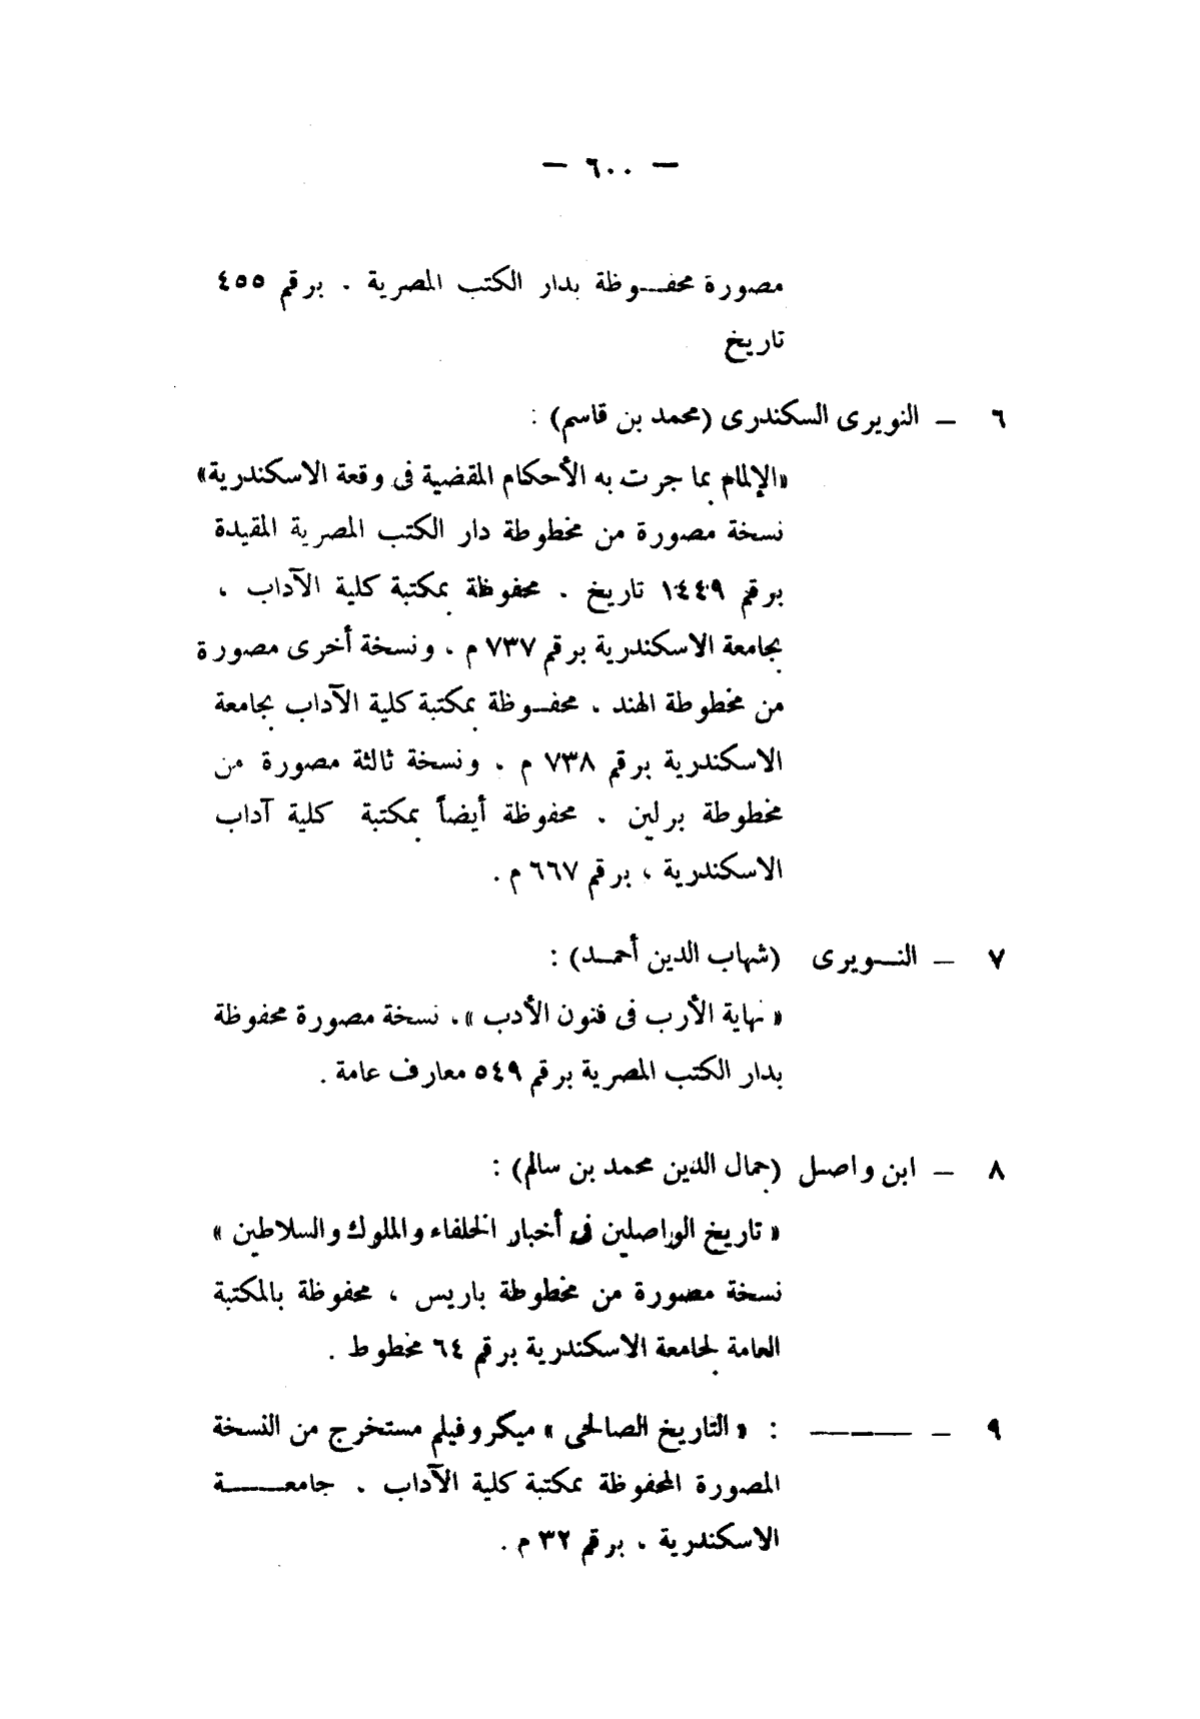 — ٦٠٠ —
مصورة محفـوظة بدار الكتب المصرية . برقم ٤٥٥
تاريخ
٦ — النويرى السكندرى (محمد بن قاسم) :
«الإلمام بما جرت به الأحكام المقضية فى وقعة الاسكندرية»
نسخة مصورة من مخطوطة دار الكتب المصرية المقيدة
برقم ١٤٤٩ تاريخ . محفوظة بمكتبة كلية الآداب ،
بجامعة الاسكندرية برقم ٧٣٧ م . ونسخة أخرى مصورة
من مخطوطة الهند . محفـوظة بمكتبة كلية الآداب بجامعة
الاسكندرية برقم ٧٣٨ م . ونسخة ثالثة مصورة من
مخطوطة برلين . محفوظة أيضاً بمكتبة كلية آداب
الاسكندرية ، برقم ٦٦٧ م .
٧ — النــويرى (شهاب الدين أحمـد) :
« نهاية الأرب فى فنون الأدب » . نسخة مصورة محفوظة
بدار الكتب المصرية برقم ٥٤٩ معارف عامة .
٨ — ابن واصل (جمال الدين محمد بن سالم) :
« تاريخ الواصلين فى أخبار الخلفاء والملوك والسلاطين »
نسخة مصورة من مخطوطة باريس ، محفوظة بالمكتبة
العامة لجامعة الاسكندرية برقم ٦٤ مخطوط .
٩ — ————— : « التاريخ الصالحى » ميكروفيلم مستخرج من النسخة
المصورة المحفوظة بمكتبة كلية الآداب . جامعــــة
الاسكندرية . برقم ٣٢ م .